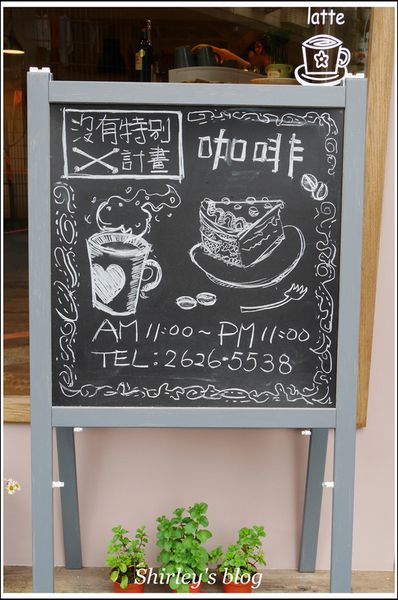 latte
沒有特別
計畫
咖啡
AM 11:00~PM 11:00
TEL:2626-5538
Shirley's blog